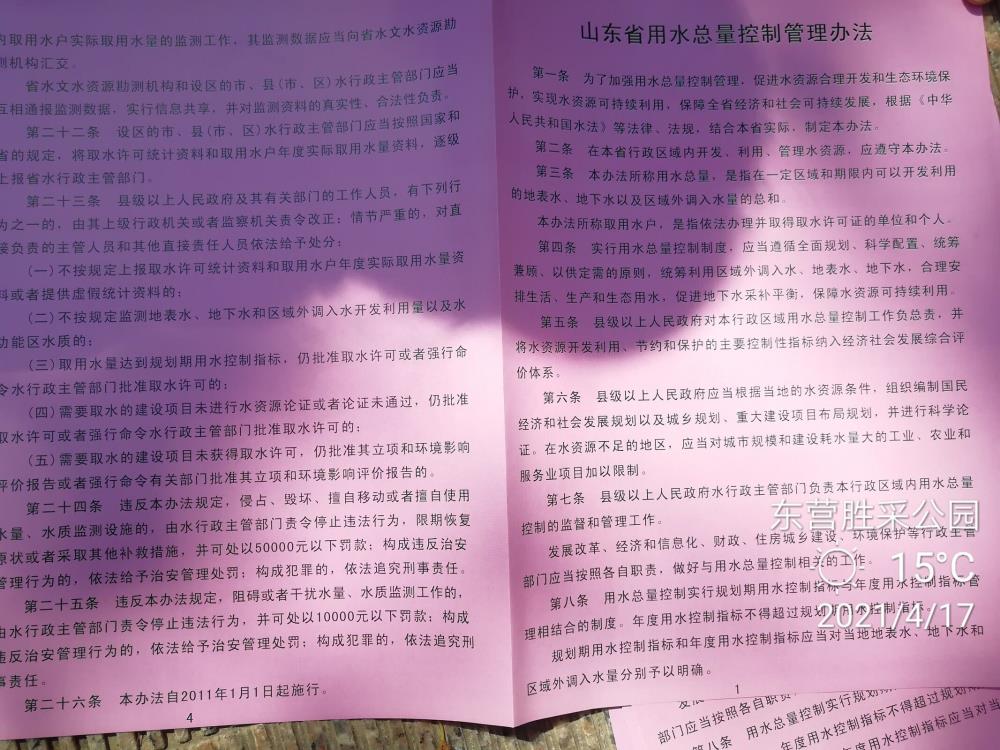 内取用水户实际取用水量的监测工作，其监测数据应当向省水文水资源勘
测机构汇交。
省水文水资源勘测机构和设区的市、县(市、区)水行政主管部门应当
互相通报监测数据，实行信息共享，并对监测资料的真实性、合法性负责。
第二十二条　设区的市、县(市、区)水行政主管部门应当按照国家和
省的规定，将取水许可统计资料和取用水户年度实际取用水量资料，逐级
上报省水行政主管部门。
第二十三条　县级以上人民政府及其有关部门的工作人员，有下列行
为之一的，由其上级行政机关或者监察机关责令改正；情节严重的，对直
接负责的主管人员和其他直接责任人员依法给予处分：
(一)不按规定上报取水许可统计资料和取用水户年度实际取用水量资
料或者提供虚假统计资料的；
(二)不按规定监测地表水、地下水和区域外调入水开发利用量以及水
功能区水质的；
(三)取用水量达到规划期用水控制指标，仍批准取水许可或者强行命
令水行政主管部门批准取水许可的；
(四)需要取水的建设项目未进行水资源论证或者论证未通过，仍批准
取水许可或者强行命令水行政主管部门批准取水许可的；
(五)需要取水的建设项目未获得取水许可，仍批准其立项和环境影响
评价报告或者强行命令有关部门批准其立项和环境影响评价报告的。
第二十四条　违反本办法规定，侵占、毁坏、擅自移动或者擅自使用
水量、水质监测设施的，由水行政主管部门责令停止违法行为，限期恢复
原状或者采取其他补救措施，并可处以50000元以下罚款；构成违反治安
管理行为的，依法给予治安管理处罚；构成犯罪的，依法追究刑事责任。
第二十五条　违反本办法规定，阻碍或者干扰水量、水质监测工作的，
由水行政主管部门责令停止违法行为，并可处以10000元以下罚款；构成
违反治安管理行为的，依法给予治安管理处罚；构成犯罪的，依法追究刑
事责任。
第二十六条　本办法自2011年1月1日起施行。
4
山东省用水总量控制管理办法
第一条　为了加强用水总量控制管理，促进水资源合理开发和生态环境保
护，实现水资源可持续利用，保障全省经济和社会可持续发展，根据《中华
人民共和国水法》等法律、法规，结合本省实际，制定本办法。
第二条　在本省行政区域内开发、利用、管理水资源，应遵守本办法。
第三条　本办法所称用水总量，是指在一定区域和期限内可以开发利用
的地表水、地下水以及区域外调入水量的总和。
本办法所称取用水户，是指依法办理并取得取水许可证的单位和个人。
第四条　实行用水总量控制制度，应当遵循全面规划、科学配置、统筹
兼顾、以供定需的原则，统筹利用区域外调入水、地表水、地下水，合理安
排生活、生产和生态用水，促进地下水采补平衡，保障水资源可持续利用。
第五条　县级以上人民政府对本行政区域用水总量控制工作负总责，并
将水资源开发利用、节约和保护的主要控制性指标纳入经济社会发展综合评
价体系。
第六条　县级以上人民政府应当根据当地的水资源条件，组织编制国民
经济和社会发展规划以及城乡规划、重大建设项目布局规划，并进行科学论
证。在水资源不足的地区，应当对城市规模和建设耗水量大的工业、农业和
服务业项目加以限制。
第七条　县级以上人民政府水行政主管部门负责本行政区域内用水总量
控制的监督和管理工作。
发展改革、经济和信息化、财政、住房城乡建设、环境保护等行政主管
部门应当按照各自职责，做好与用水总量控制相关的工作。
第八条　用水总量控制实行规划期用水控制指标与年度用水控制指标管
理相结合的制度。年度用水控制指标不得超过规划期用水控制指标。
规划期用水控制指标和年度用水控制指标应当对当地地表水、地下水和
区域外调入水量分别予以明确。
1
东营胜采公园
15°C
2021/4/17
部门应当按照各自职责，
第八条　用水总量控制实行规划
年度用水控制指标不得超过规划
年度用水控制指标应当对当